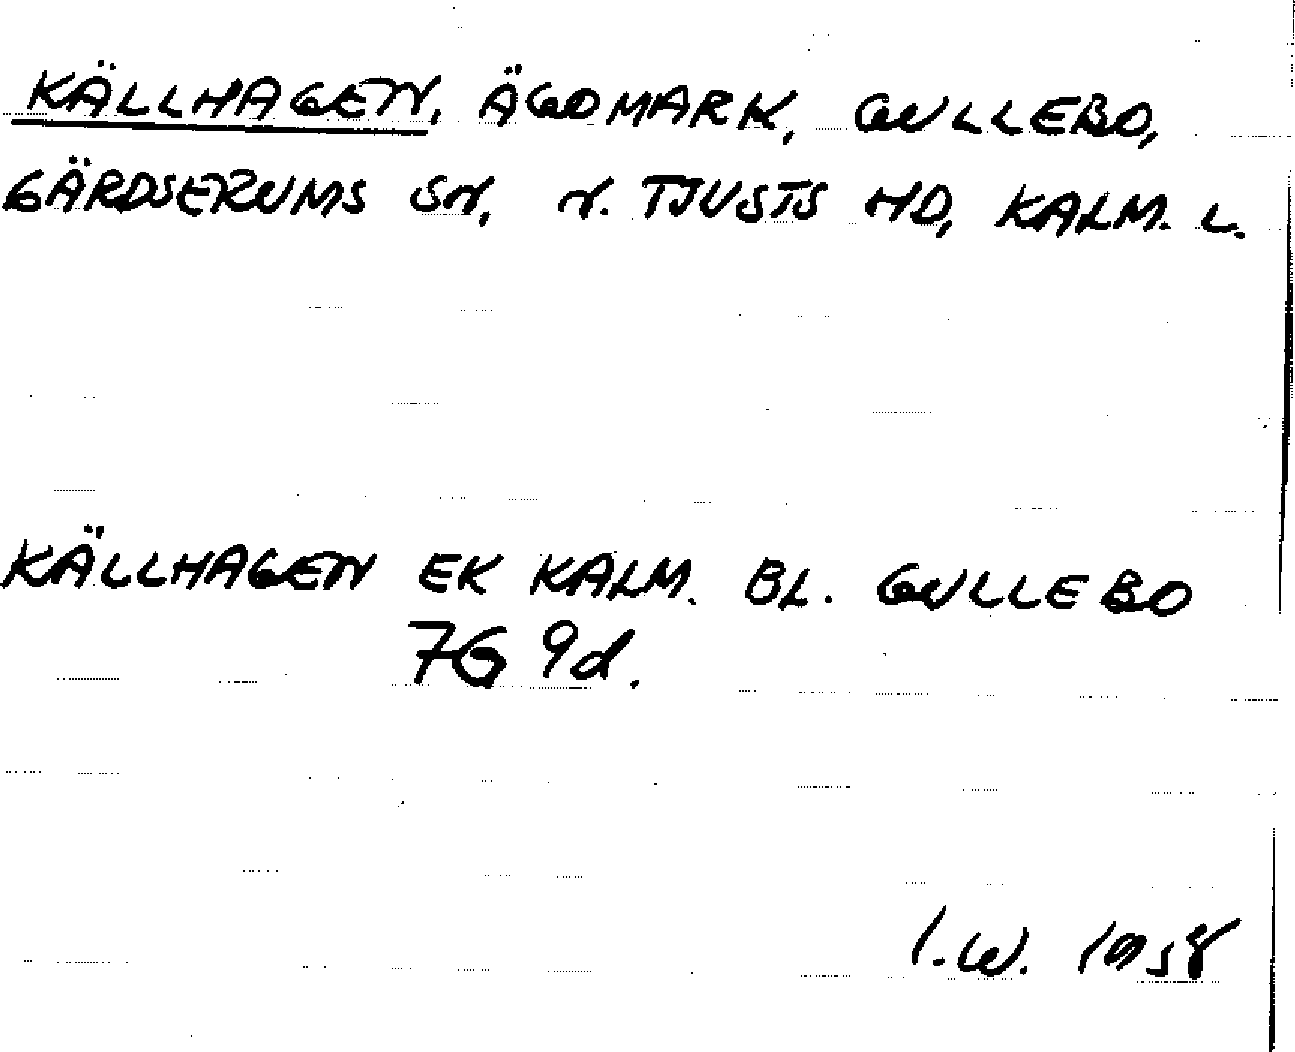 KÄLLHAGEN, ÄGOMARK, GULLEBO,
GÄRDSERUMS SN, N. TJUSTS HD, KALM. L.
KÄLLHAGEN EK KALM. BL. GULLEBO
7G 9d.
I.W. 1958